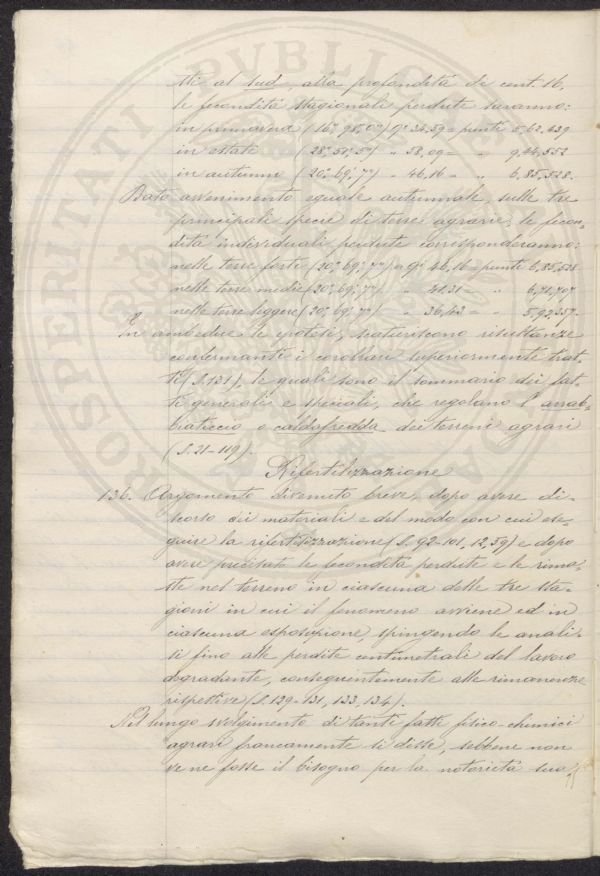 tti al sud, alla profondità di cent. 16,
le fecondità stagionali perdute saranno:
in primavera (16°, 98, 0") qi 34,59 = punti 5,62,439
in estate (28°, 51, 5°) " 58,09 = " 9,44,552
in autunno (20°, 69, 7") " 46,16 = " 6,85,528.
Dato avvenimento eguale autunnale, sulle tre
principali specie di terre agrarie, le fecon-
dità individuali perdute corresponderanno:
nelle terre forti (20°, 69, 7") a qi 46,16 = punti 6,85,528
nelle terre medie (20°, 69, 7") " 41,31 = " 6,71,707
nelle terre leggere (20°, 69, 7") " 36,43 = " 5,92,357.
In ambedue le ipotesi, scaturiscono risultanze
confermanti i corollari superiormente trat-
ti (S. 131), le quali sono il sommario dei fat-
ti generali e speciali, che regolano l'arrab-
biaticcio o caldafredda dei terreni agrari
(S. 21-119).
Rifertilizzazione
136. Argomento divenuto breve, dopo avere di-
scorso dei materiali e del modo con cui ese-
guire la rifertilizzazione (S. 92-101, 12, 59) e dopo
avere precisato le fecondità perdute e le rima-
ste nel terreno in ciascuna delle tre sta-
gioni in cui il fenomeno avviene ed in
ciascuna esposizione, spingendo le anali-
si fino alle perdite centimetrali del lavoro
degradente, conseguentemente alle rimanenze
rispettive (S. 129-131, 133, 134).
Nel lungo svolgimento di tanti fatti fisico-chimici
agrari francamente si disse, sebbene non
ve ne fosse il bisogno per la notorietà sua,
PROSPERITATI PVBLICAE